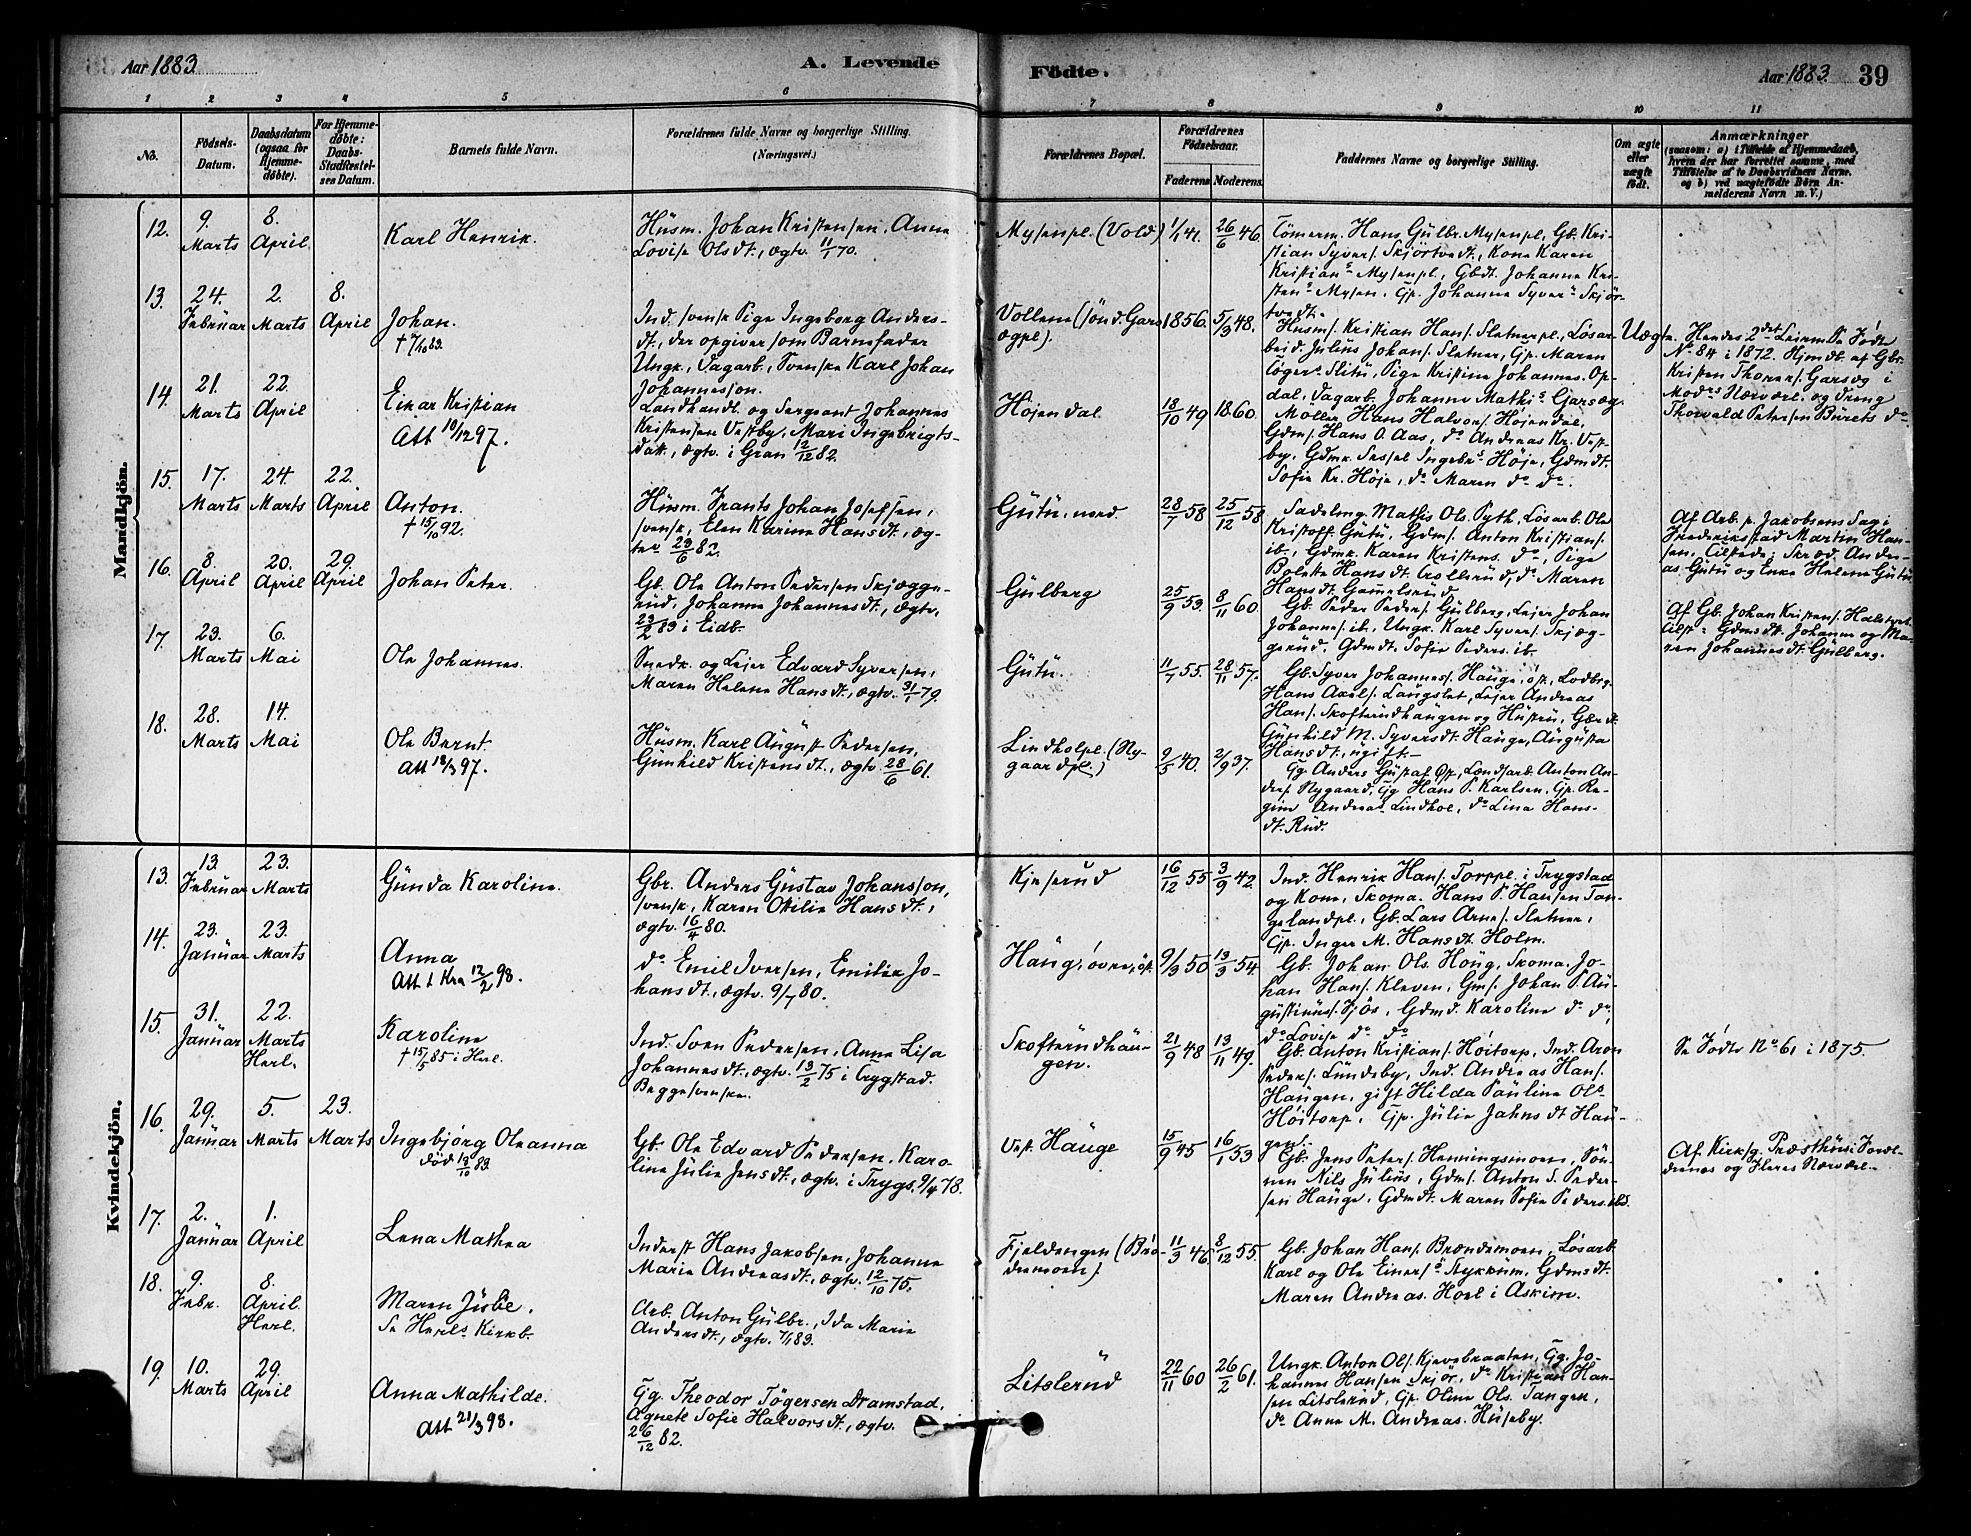 Aar 1883.
A. Levende
Födte.
Aar 1883.
39
1 2 3 4 5 6 7 8 9 10 11
No.
Födsels-
Datum.
Daabsdatum
(ogsaa for
Hjemme-
døbte).
For Hjemme-
døbte:
Daabs-
Stadfæstel-
ses Datum.
Barnets fulde Navn.
Forældrenes fulde Navne og borgerlige Stilling.
(Næringsvei.)
Forældrenes Bopæl.
Forældrenes
Födselsaar.
Faderens.
Moderens.
Faddernes Navne og borgerlige Stilling.
Om ægte
eller
uægte
født.
Anmærkninger
(saasom: a) i Tilfælde af Hjemmedaab,
hvem der har forrettet samme, med
Tilföielse af to Daabsvidners Navne,
og b) ved uægtefödte Börn An-
melderens Navn m.V.)
Mandkjön.
12.
9. Marts
8. April
Karl Henrik.
Husm. Johan Kristensen, Anna
Lovise Olsdt., ægtv. 11/1 70.
Mysenpl. (Vold)
1/1 41.
26/6 46.
Tömerm. Hans Gülbr. Mysenpl, Gb. Kri-
stian Syvers. Skjörtvedt, Kone Karen
Kristians Mysenpl., Gbdt. Johanne Kri-
stens Mysen, Gp. Johanne Syvers Skjör-
tvedt.
13.
24. Februar
2. Marts
8. April
Johan.
† 7/10 83.
Ind. svensk Pige Ingeborg Anders-
dt., der opgiver som Barnefader
Ungk., Dagarb., Svenske Karl Johan
Johannesson.
Vollene (sönd. Gars-
ægpl.)
1856.
5/3 48.
Husm. Kristian Hans. Sletnerpl., Lösar-
beid. Julius Johans. Sletner, Gp. Maren
Tögers Slitu, Pige Kristine Johannes. Op-
dal, Dagarb. Johanne Mathis Garsæg.
Uægte.
Hendes 2det Leierm. Se Födte
No 84 i 1872. Hjmdt. af Gbr.
Kristen Thorers. Garsæg i
Mods Nærværl. og Dreng
Thorvald Petersen Burets do
14.
21. Marts
22. April
Einar Kristian
Att 10/12 97.
Landhandl. og Sergeant Johannes
Kristensen Vestby, Mari Ingebrigts-
datt., ægtv. i Gran 12/12 82.
Höjendal
18/10 49
1860.
Möller Hans Halvors. Höjendal,
Gdms. Hans O. Aas, do Andreas Kr. Vest-
by, Gdmk. Sessel Ingebrs Höje, Gdmdt.
Sofie Kr. Höje, do Maren do do.
15.
17. Marts
24. Marts
22. April
Anton.
† 15/10 92.
Husm. Frants Johan Josefsen,
svensk, Elen Karine Hansdt., æg-
tv. 23/6 82.
Gutu, nord.
28/7 58
25/12 58
Sadelmg. Mathis Ols. Pyth, Lösarb. Ole
Kristoff. Gutu, Gdms. Anton Kristians.
ib., Gdmk. Karen Kristens. do, Pige
Bolette Hansdt. Trollerud, do Maren
Hansdt. Gamelsrud
Af Arb. p. Jakobsens Sag i
Frederikstad Martin Han-
sen, Tilstede: Skræd. Andre-
as Gutu og Enke Helene Gutu
16.
8. April
20. April
29. April
Johan Peter.
Gb. Ole Anton Pedersen Skjægge-
rud, Johanne Johannesdt., ægtv.
23/2 83 i Eidb.
Gülberg
25/9 53.
8/11 60.
Gb. Peder Peders. Gülberg, Lejer Johan
Johanness. ib., Ungk. Karl Syvers. Skjæg-
gerud, Gdmdt. Sofie Peders. ib.
Af Gb. Johan Kristens. Halstvet.
Tilst: Gdmsdt. Johanne og Ma-
ren Johannesdt. Gülberg.
17.
23. Marts
6. Mai
Ole Johannes.
Snedk. og Lejer Edvard Syversen,
Maren Helene Hansdt., ægtv. 31/1 79.
Gutu.
11/7 55.
28/11 57.
Gb. Syver Johanness. Hauge, ö/v, Lodbrg.
Hans Axels. Langslet, Lejer Andreas
Hans. Skofterudhaugen og Hustru, Gbr.dt.
Gunhild M. Syversdt. Hauge, Augusta
Hansdt., ugift.
18.
28. Marts
14. Mai
Ole Bernt.
Att 18/3 97.
Husm. Karl August Pedersen,
Gunhild Kristensdt., ægtv. 28/6 61.
Lindholpl. (Ny-
gaardpl.)
2/5 40.
2/9 37.
Gg. Anders Gustaf Öst, Landsarb. Anton An-
ders. Nygaard, Gg Hans P. Karlsen, Gp. Re-
gine Andreas. Lindhol, do Lina Hans-
dt. Rud.
Kvindekjön.
13.
13. Februar
23. Marts
Gunda Karoline.
Gbr. Anders Gustav Johansson,
svensk, Karen Otilie Hansdt.,
ægtv. 16/4 80.
Kjeserud
16/12 55
3/9 42.
Ind. Henrik Hans. Torppl. i Trygstad
og Kone, Skoma. Hans P. Hansen Tan-
gelandpl., Gb. Lars Arnes. Sletner,
Gp. Inger M. Hansdt. Holm.
14.
23. Januar
23. Marts
Anna
Att t Kra 12/2 98.
do Emil Iversen, Emilie Jo-
hansdt., ægtv. 9/7 80.
Haug, övre, öst.
9/3 50
13/3 54
Gb. Johan Ols. Haug, Skoma. Jo-
han Hans. Kleven, Gms. Johan P. Au-
gustinus Sjös, Gdmd. Karoline do do,
do Lovise do do
15.
31. Januar
22. Marts
Herl.
Karoline
† 15/5 85 i Herl.
Ind. Sven Pedersen, Anna Lisa
Johannesdt., ægtv. 13/2 75 i Trygstad.
Begge svenske.
Skofterudhau-
gen.
21/9 48
13/11 49.
Gb. Anton Kristians. Höitorp, Ind. Aron
Peders. Lundeby, Ind. Andreas Hans.
Haugen, gift Hilda Pauline Ols
Höitorp, Gp. Julie Jahnsdt Hau-
gen.
Se Födte No 61 i 1875.
16.
29. Januar
5. Marts
23. Marts
Ingebjörg Oleanna
död 13/10 83.
Gb. Ole Edvard Pedersen, Karo-
line Julie Jensdt., ægtv. i Trygs. 9/4 78.
Vest. Hauge
15/9 45
16/1 53
Gb. Jens Peters. Henningsmoen, Sön-
nen Nils Julius, Gdms. Anton S. Peder-
sen Hauge, Gdmdt. Maren Sofie Peders. ibd.
Af Kirksg. Præsthus i Foræl-
drenes og Fleres Nærværl.
17.
2. Januar
1. April
Lena Mathea
Inderst Hans Jakobsen, Johanne
Marie Andreasdt., ægtv. 12/10 75.
Fjeldengen (Brö-
demoen).
11/3 46.
8/12 55.
Gb. Johan Hans. Brændemoen, Lösarb.
Karl og Ole Einers. Nykkum, Gdmsdt.
Maren Andreas. Hoel i Askim.
18.
9. Febr.
8. April
Herl.
Maren Julie.
Se Herls Kirkb.
Arb. Anton Gülbr., Ida Marie
Andersdt., ægtv. 7/1 83.
19.
10. Marts
29. April
Anna Mathilde.
Att 21/3 98.
Gg. Theodor Tögersen Dramstad,
Agnete Sofie Halvorsdt., ægtv.
26/12 82.
Litslerud
22/11 60
26/2 61.
Ungk. Anton Ols. Kjevebraaten, Gg. Jo-
hannes Hansen Skjör, do Kristian Han-
sen Litslerud, Gp. Oline Ols. Tangen,
do Anne M. Andreas. Huseby.